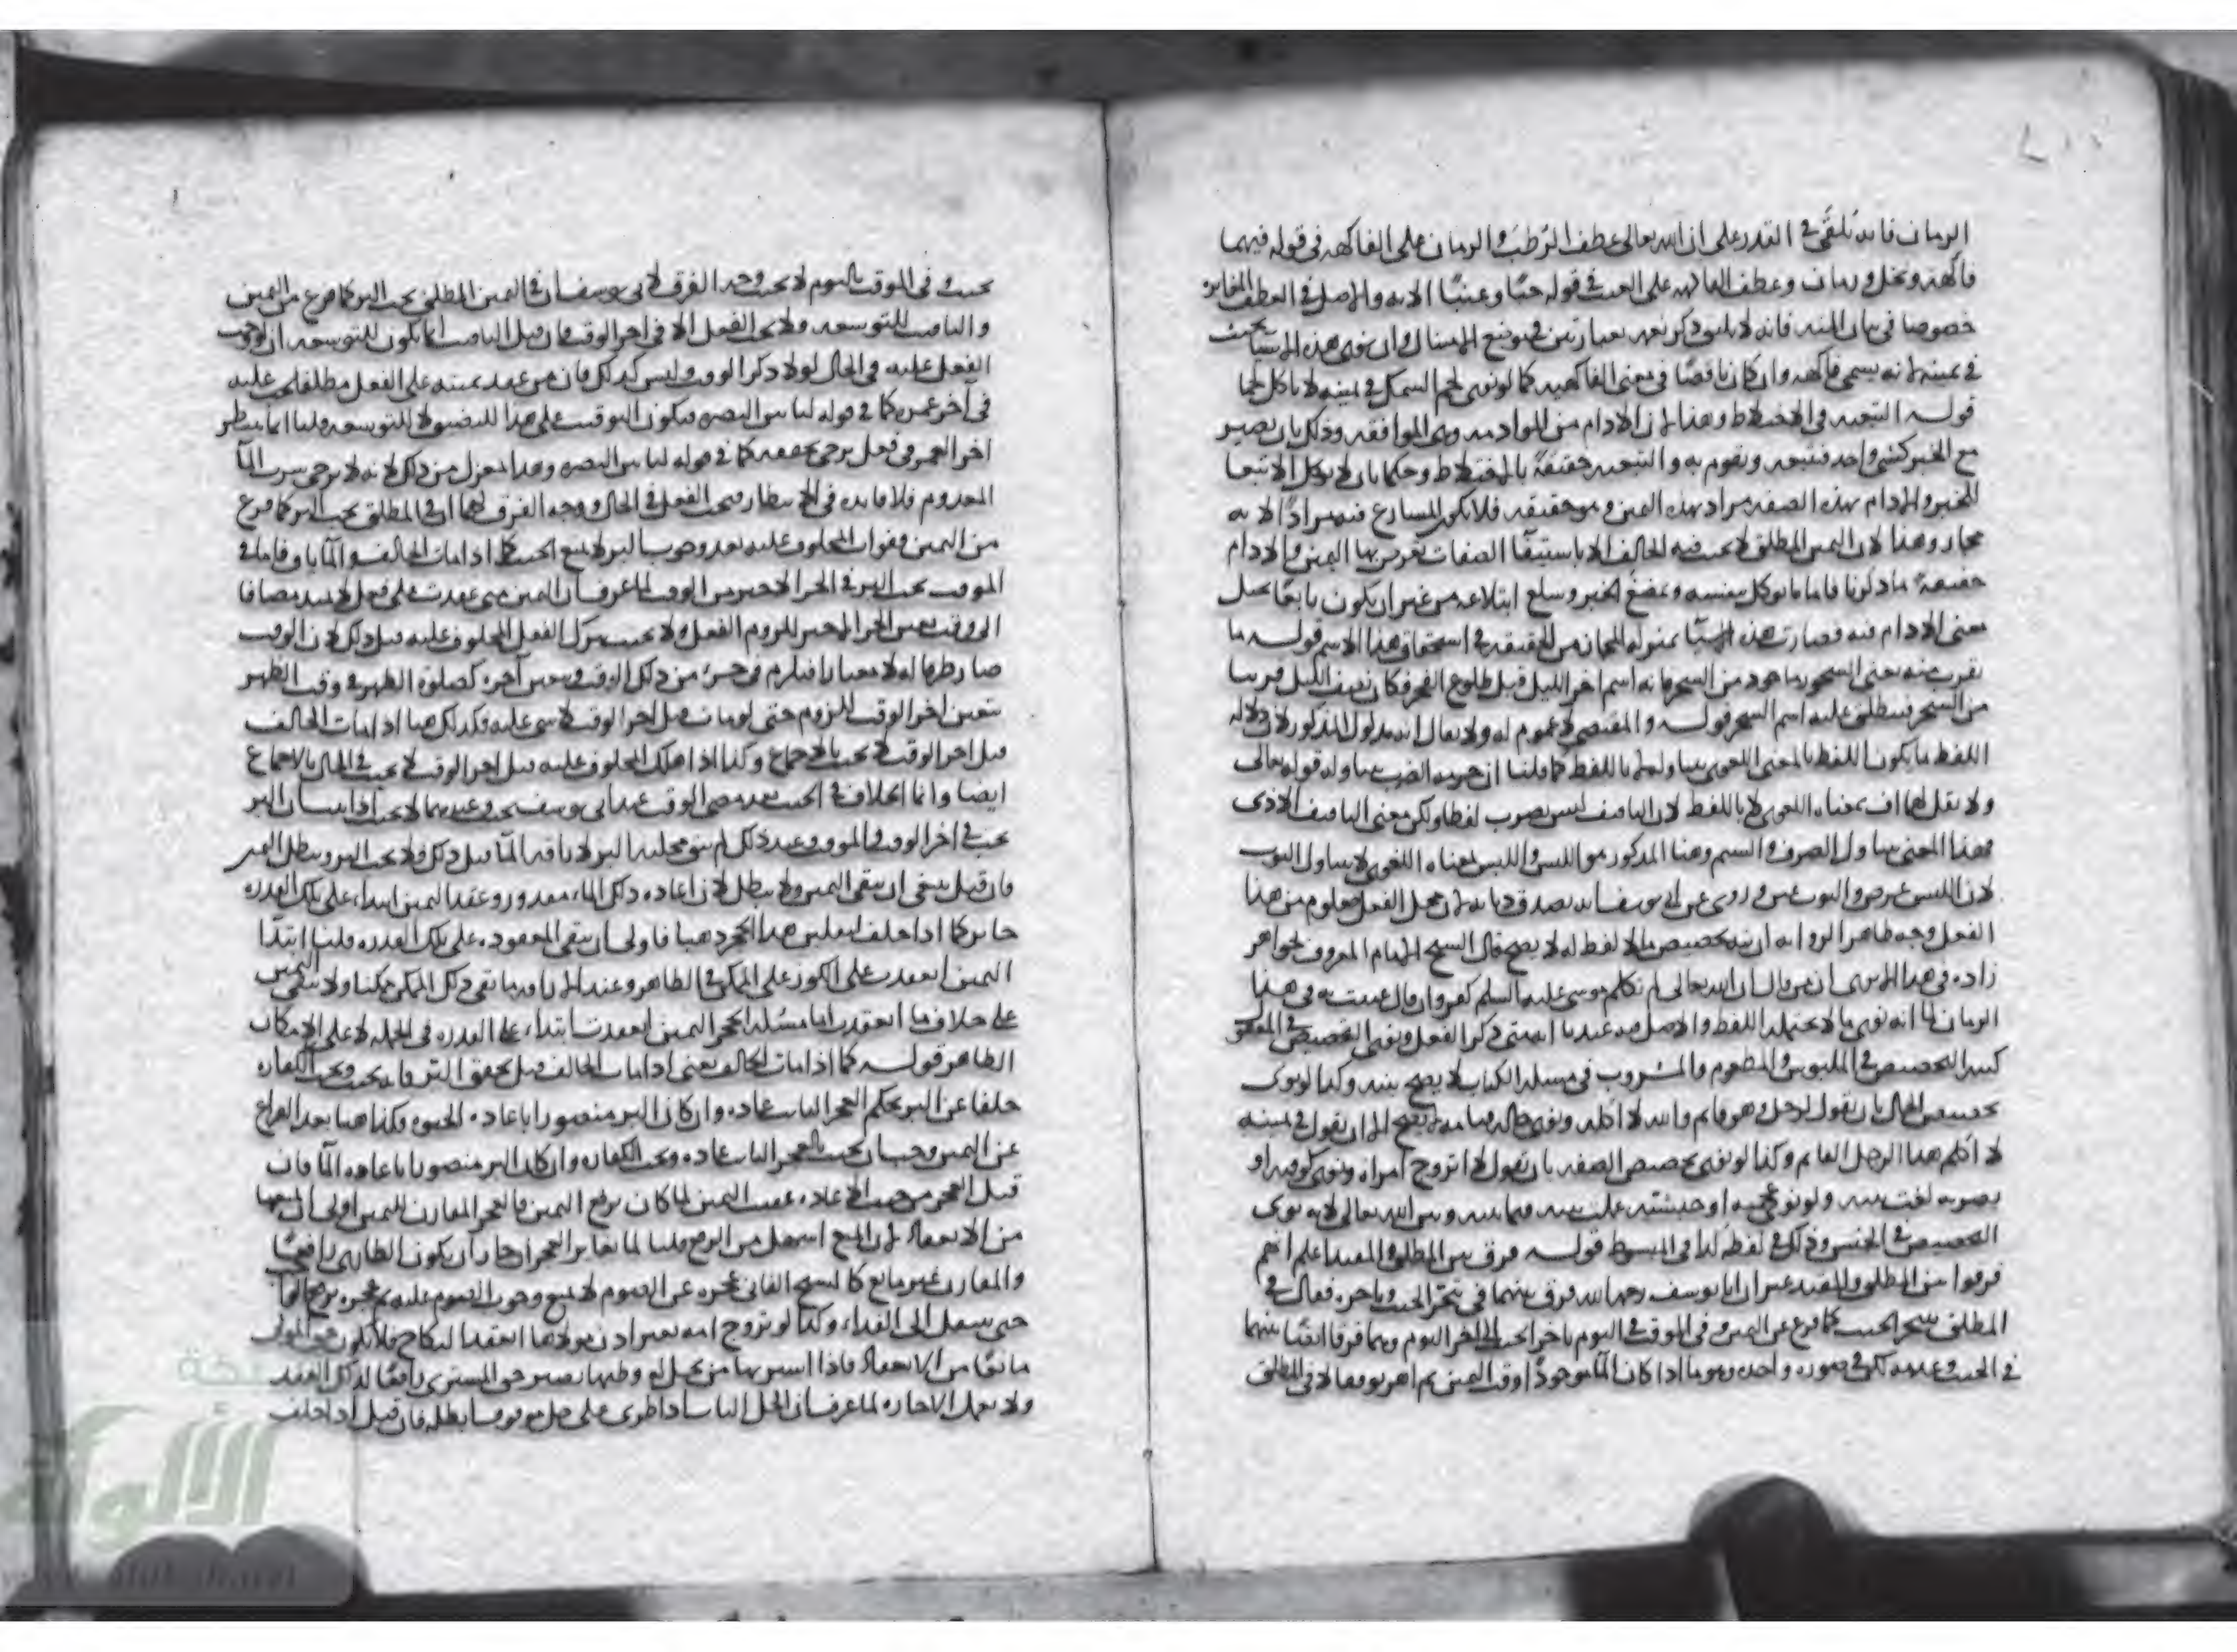 الرمان فانه يلقى في القدر على ان الله تعالى عطف الرطب والرمان على الفاكهه في قوله فيهما
فاكهة ونخل ورمان وعطف الفاكهه على العنب في قوله حبا وعنبا الايه والاصل في العطف المغايره
خصوصا في بيان المنه فانه لا يليق ذكر نعمه بعبارتين في موضع الامتنان وان نوى هذه الاشيا يحنث
في يمينه لانه يسمى فاكهه وان كان ناقصا في معنى الفاكهيه كما لو نوى لحم السمك في يمينه لا ياكل لحما
قوله التبعيه في الاختلاط وهذا لان الادام من الموادمه وهى الموافقه وذلك بان يصير
مع الخبز كشى واحد فتبعه ويقوم به والتبعيه حقيقة بالاختلاط وحكما بان لا يوكل الا تبعا
للخبز والادام بهذه الصفه مراد بهذه اليمين وهو حقيقته فلا يكون المسارع فيه مرادا لانه
مجاز وهذا لان اليمين المطلق لا يحنث فيه الحالف الا باستيفا الصفات يعرض بها اليمين والادام
حقيقة ما ذكرنا فاما ما يوكل بنفسه ويمضغ الخبز ويبلع ابتلاعه من غير ان يكون تابعا يحل
معنى الادام فيه فصارت هذه الاشيا بمنزله المجاز من الحقيقه في استحقاق هذا الاسم قوله ما
يقرب منه يعنى السحور ماخوذ من السحر فانه اسم اخر الليل قبل طلوع الفجر فكان نصف الليل قريبا
من السحر فيطلق عليه اسم السحر قوله والمقتضى لا عموم له ولا يقال انه مدلول المذكور لان دلاله
اللفظ ما يكون اللفظ بالمعنى اللغوى يتناوله لا باللفظ كما قلنا ان حرمه الضرب يتناوله قوله تعالى
ولا تقل لهما اف بمعناه اللغوى لا باللفظ لان التافيف ليس بضرب لفظا ولكن معنى التافيف الاذى
فهذا المعنى يتناول الضرب والشتم وهنا المذكور هو اللبس واللبس بمعناه اللغوى لا يتناول الثوب
لان اللبس عرض والثوب عين وروى عن ابى يوسف انه يصدق ديانه لان محل الفعل معلوم من هذا
الفعل وجه ظاهر الروايه ان نيه تخصيص ما لا لفظ له لا يصح قال الشيخ الامام المعروف بخواهر
زاده في هذا الاترى ان من قال ان الله تعالى لم يكلم موسى عليه السلم كفر وان قال عنيت به في هذا
الزمان لما انه نوى ما لا يحتمله اللفظ والاصل فيه عندنا انه متى ذكر الفعل ونوى التخصيص في المفعول
كنيه التخصيص في الملبوس والمطعوم والمشروب في مسله الكتاب لا يصح نيته وكذا لو نوى
تخصيص الحال بان يقول لرجل وهو قايم والله لا اكلمه ونوى حال قيامه لم يصح الا ان يقول في يمينه
لا اكلم هذا الرجل القايم وكذا لو نوى تخصيص الصفه بان يقول لا اتزوج امراه ونوى كوفيه او
بصريه لغت نيته ولو نوى عجميه او حبشيه عملت نيته فيما بينه وبين الله تعالى لانه نوى
التخصيص في الجنس وذلك في لفظه كذا في المبسوط قوله فرق بين المطلق والمقيد اعلم انهم
فرقوا بين المطلق والمقيد غير ان ابا يوسف رحمه الله فرق بينهما في تنجز الحنث وتاخره فقال في
المطلق يتنجز الحنث كما فرغ من اليمين وفى الموقت في اليوم تاخر الحنث الى اخر اليوم وهما فرقا ايضا بينهما
في الحنث وعدمه لكن في صوره واحده وهو ما اذا كان الما موجودا وقت اليمين ثم اهريق وقالا في المطلق
يحنث وفى الموقت باليوم لا يحنث وجه الفرق لابى يوسف ان في اليمين المطلق يجب البر كما فرغ من اليمين
والتاقيت للتوسعه ولا يجب الفعل الا في اخر الوقت فان قيل التاقيت انما يكون للتوسعه ان لو وجب
الفعل عليه في الحال لولا ذكر الوقت وليس كذلك فان من عقد يمينه على الفعل مطلقا يجب عليه
في آخر عمره كما في قوله لياتين البصره فيكون التوقيت على هذا للتضييق لا للتوسعه قلنا انما ينظر
اخر العمر في فعل يرجى تحققه كما في قوله لياتين البصره وهذا بمعزل من ذلك لانه لا يرجى شرب الما
المعدوم فلا فايده في الانتظار فيجب الفعل في الحال ووجه الفرق لهما ان في المطلق يجب البر كما فرغ
من اليمين وفوات المحلوف عليه بعد وجوب البر لا يمنع الحنث كما اذا مات الحالف والما باق فاما في
الموقت يجب البر في الجز الاخير من الوقت لما عرف ان اليمين متى عقدت على فعل لا يمتد مضافا
الى وقت يتعين الجز الاخير للزوم الفعل ولا يحنث بترك الفعل المحلوف عليه قبل ذلك لان الوقت
صار ظرفا له لا معيارا فيلزم في جزء من ذلك الوقت ويتعين آخره كصلوة الظهر في وقت الظهر
يتعين اخر الوقت للزوم حتى لو مات قبل اخر الوقت لا شى عليه وكذلك هنا اذا مات الحالف
قبل اخر الوقت لا يحنث بالاجماع وكذا اذا هلك المحلوف عليه قبل اخر الوقت لا يحنث في الحال بالاجماع
ايضا وانما الخلاف في الحنث بعد مضى الوقت عند ابى يوسف يحنث وعندهما لا يحنث اذا ثبت ان البر
يجب في اخر الوقت في الموقت وعند ذلك لم يبق محلية البر لاراقه الما قبل ذلك ولا يجب البر ويبطل اليمين
فان قيل ينبغى ان يبقى اليمين ولا يبطل لان اعاده ذلك الماء مقدور وعقد اليمين ابتداء على تلك القدره
جايز كما اذا حلف ليقلبن هذا الحجر ذهبا فاولى ان يبقى المعقوده على تلك القدره قلنا ابتدا
اليمين انعقدت على الكوز على الممكن في الظاهر وعند الاراقه ما بقى ذلك الممكن ممكنا ولا تبقى اليمين
على خلاف ما انعقدت اما مسئله الحجر اليمين انعقدت ابتداء على القدره في الجمله لا على الامكان
الظاهر قوله كما اذا مات الحالف يعنى اذا مات الحالف قبل تحقق البر فانه يحنث ويجب الكفاره
خلفا عن البر بحكم العجز الثابت عاده وان كان البر متصورا باعاده الحيوه وكذا هنا بعد الفراغ
عن اليمين وجب ان يحنث بالعجز الثابت عاده ويجب الكفاره وان كان البر متصورا باعاده الما فان
قيل العجز من حيث العاده عقيب اليمين لما كان يرفع اليمين فالعجز المقارن لليمين اولى ان يمنعها
من الانعقاد لان المنع اسهل من الرفع قلنا لما تغاير العجزان جاز ان يكون الطارى رافعا
والمقارن غير مانع كالشيخ الفانى عجزه عن الصوم لا يمنع وجوب الصوم عليه ثم عجزه يرفع
حتى ينتقل الى الفداء وكذا لو تزوج امه بغير اذن مولاها انعقد النكاح فلا يكون حق المولى
مانعا من الانعقاد فاذا اشتراها من يحل له وطئها يصير حق المشترى رافعا لذلك العقد
ولا يعمل الاجازه لما عرف ان الحل البات اذا طرى على حل موقوف ابطله فان قيل اذا حلف